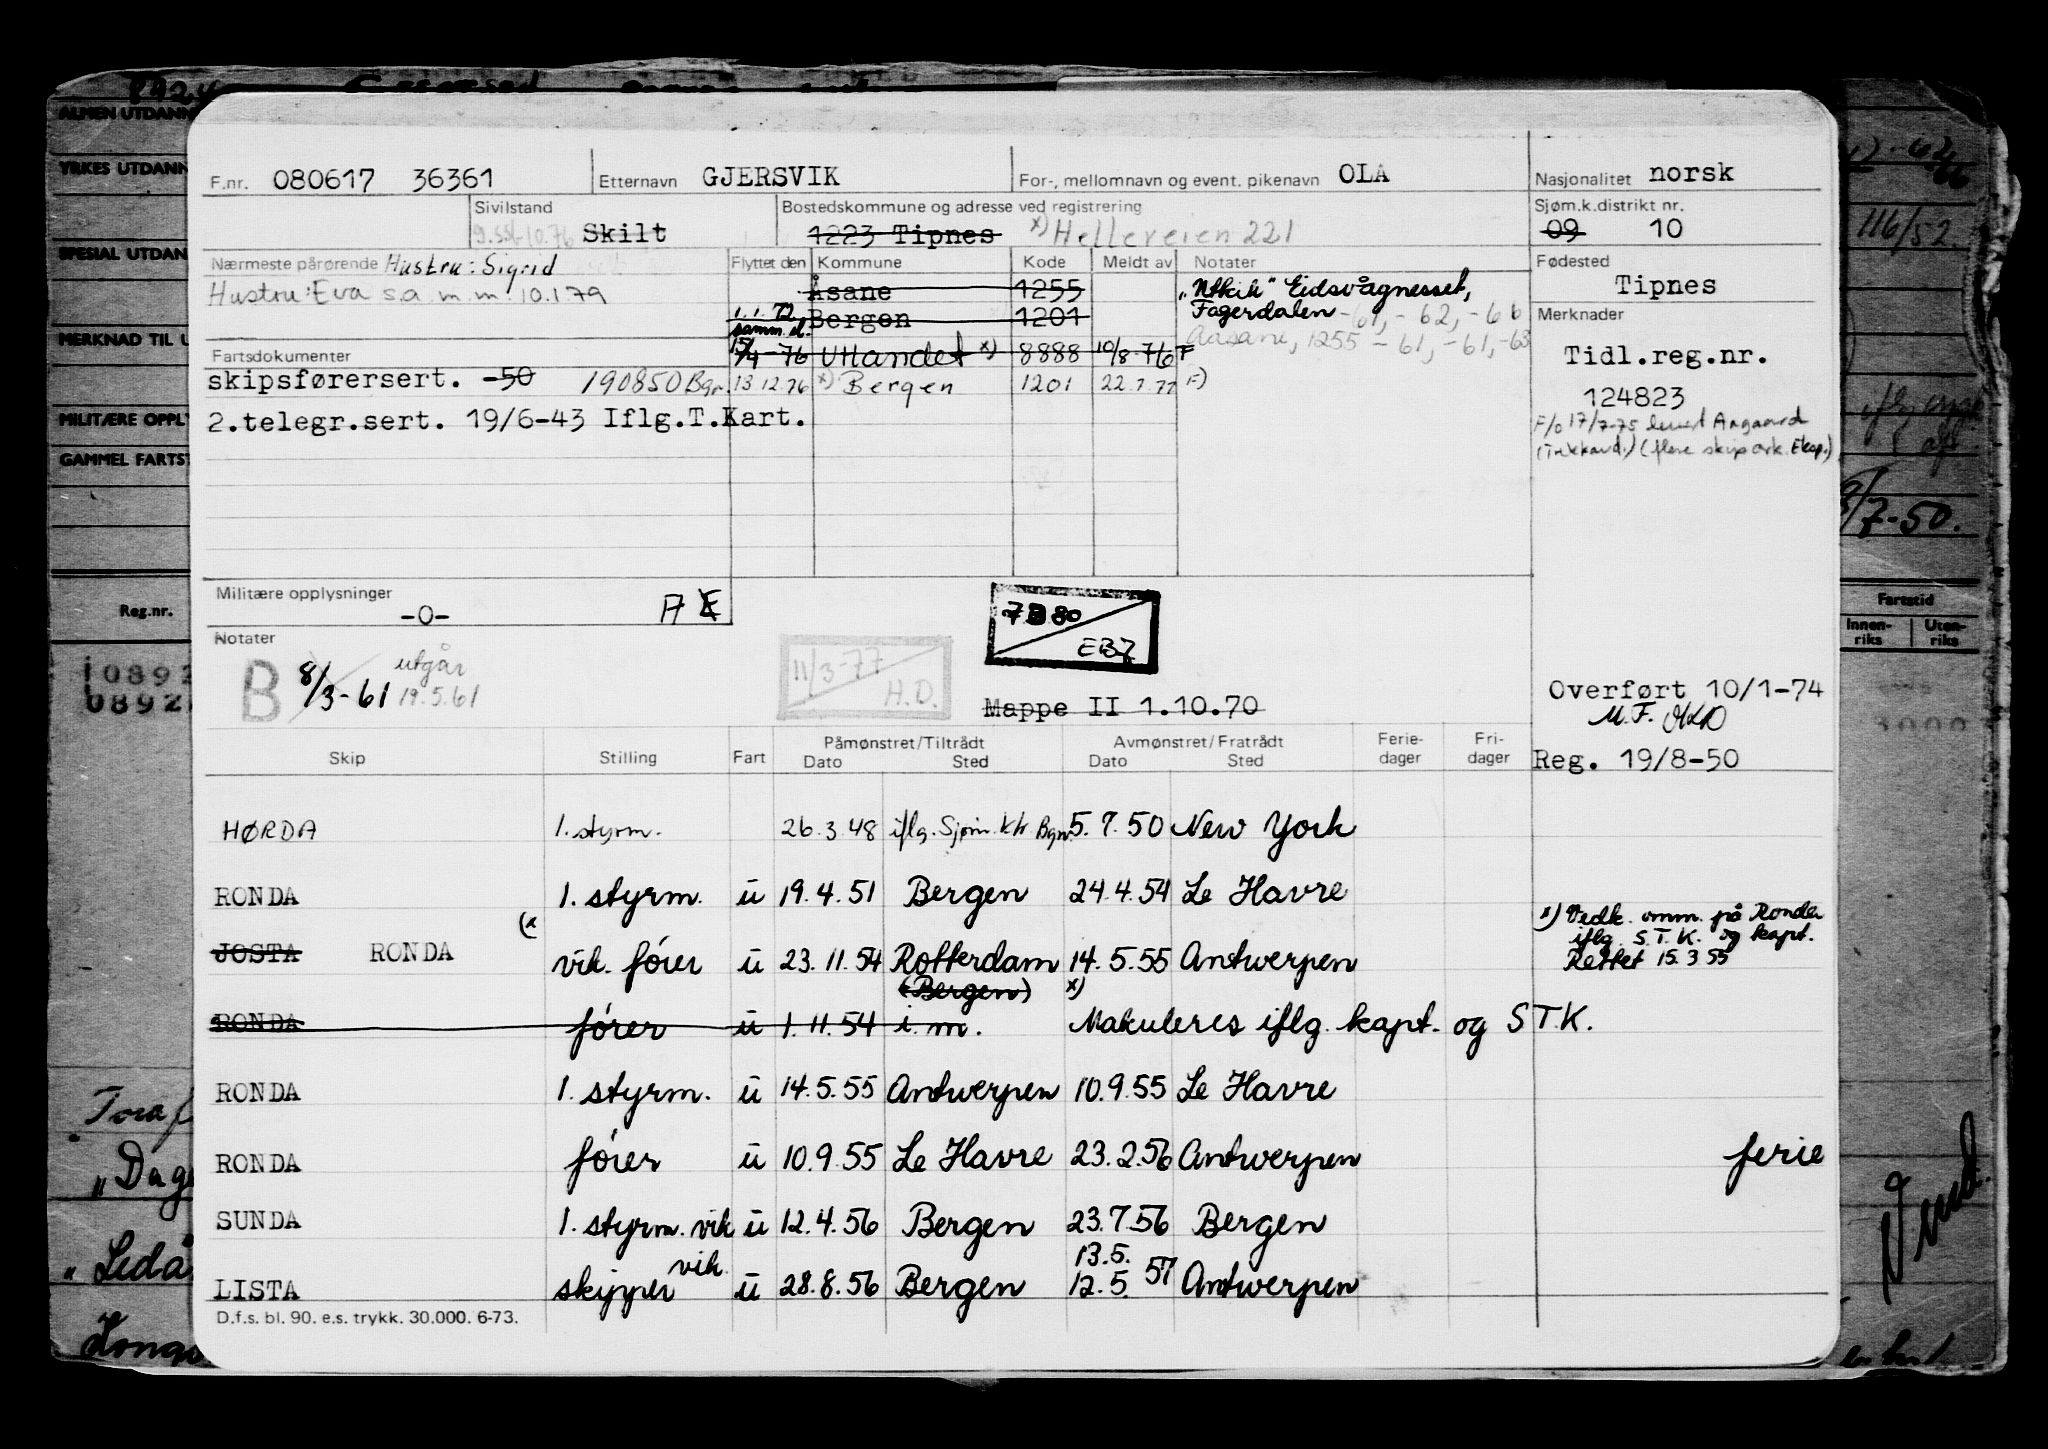 F.nr. 080617 36361 Etternavn GJERSVIK For-, mellomnavn og event. pikenavn OLA Nasjonalitet norsk
Sivilstand Bostedskommune og adresse ved registrering Sjøm.k.distrikt nr.
Skilt 1223 Tipnes x) Helleveien 221 09 10
Nærmeste pårørende Hustru: Sigrid Flyttet den Kommune Kode Meldt av Notater Fødested
Hustru: Eva s.a.m.m. 10.1.79 Åsane 1255 Eidsvågnesset, Tipnes
1.1.72 Bergen 1201 Fagerdalen -61, -62, -66 Merknader
samm.sl. Aasane, 1255 -61, -61, -63
Fartsdokumenter 15/4-76 Utlandet x) 8888 10/8-76 F Tidl.reg.nr.
skipsførersert. -50 190850 Bgn. 13.12.76 x) Bergen 1201 22.7.77 F) 124823
2.telegr.sert. 19/6-43 Iflg.T.Kart. F/o 17/7-75 Aagaard
Militære opplysninger
-0- A E
7 80
EB7
Notater
B 8/3-61 utgår 19.5.61
11/3-77
H.D.
Mappe II 1.10.70
Overført 10/1-74
M.F.
Reg. 19/8-50
Skip Stilling Fart Påmønstret/Tiltrådt Avmønstret/Fratrådt Ferie-dager Fri-dager
Dato Sted Dato Sted
HØRDA 1. styrm. 26.3.48 iflg. Sjøm.ktr Bgn 5.7.50 New York
RONDA 1. styrm. u 19.4.51 Bergen 24.4.54 Le Havre
x) Vedk. omm. på Ronda
iflg. S.T.K. og kapt.
Rettet 15.3.55
JOSTA RONDA (x vik. fører u 23.11.54 Rotterdam 14.5.55 Antwerpen
(Bergen) x)
RONDA fører u 1.11.54 i.m. Makuleres iflg. kapt. og S T.K.
RONDA 1. styrm. u 14.5.55 Antwerpen 10.9.55 Le Havre
RONDA fører u 10.9.55 Le Havre 23.2.56 Antwerpen ferie
SUNDA 1. styrm. vik u 12.4.56 Bergen 23.7.56 Bergen
13.5.
LISTA skipper vik. u 28.8.56 Bergen 12.5.57 Antwerpen
D.f.s. bl. 90. e.s. trykk. 30.000. 6-73.
ALMEN UTDANN
YRKES UTDANN
SPESIAL UTDAN
MERKNAD TIL
MILITÆRE OPPLY
GAMMEL FARTST
Reg.nr.
116/52
/7-50.
Fartstid
Innen-riks Uten-riks